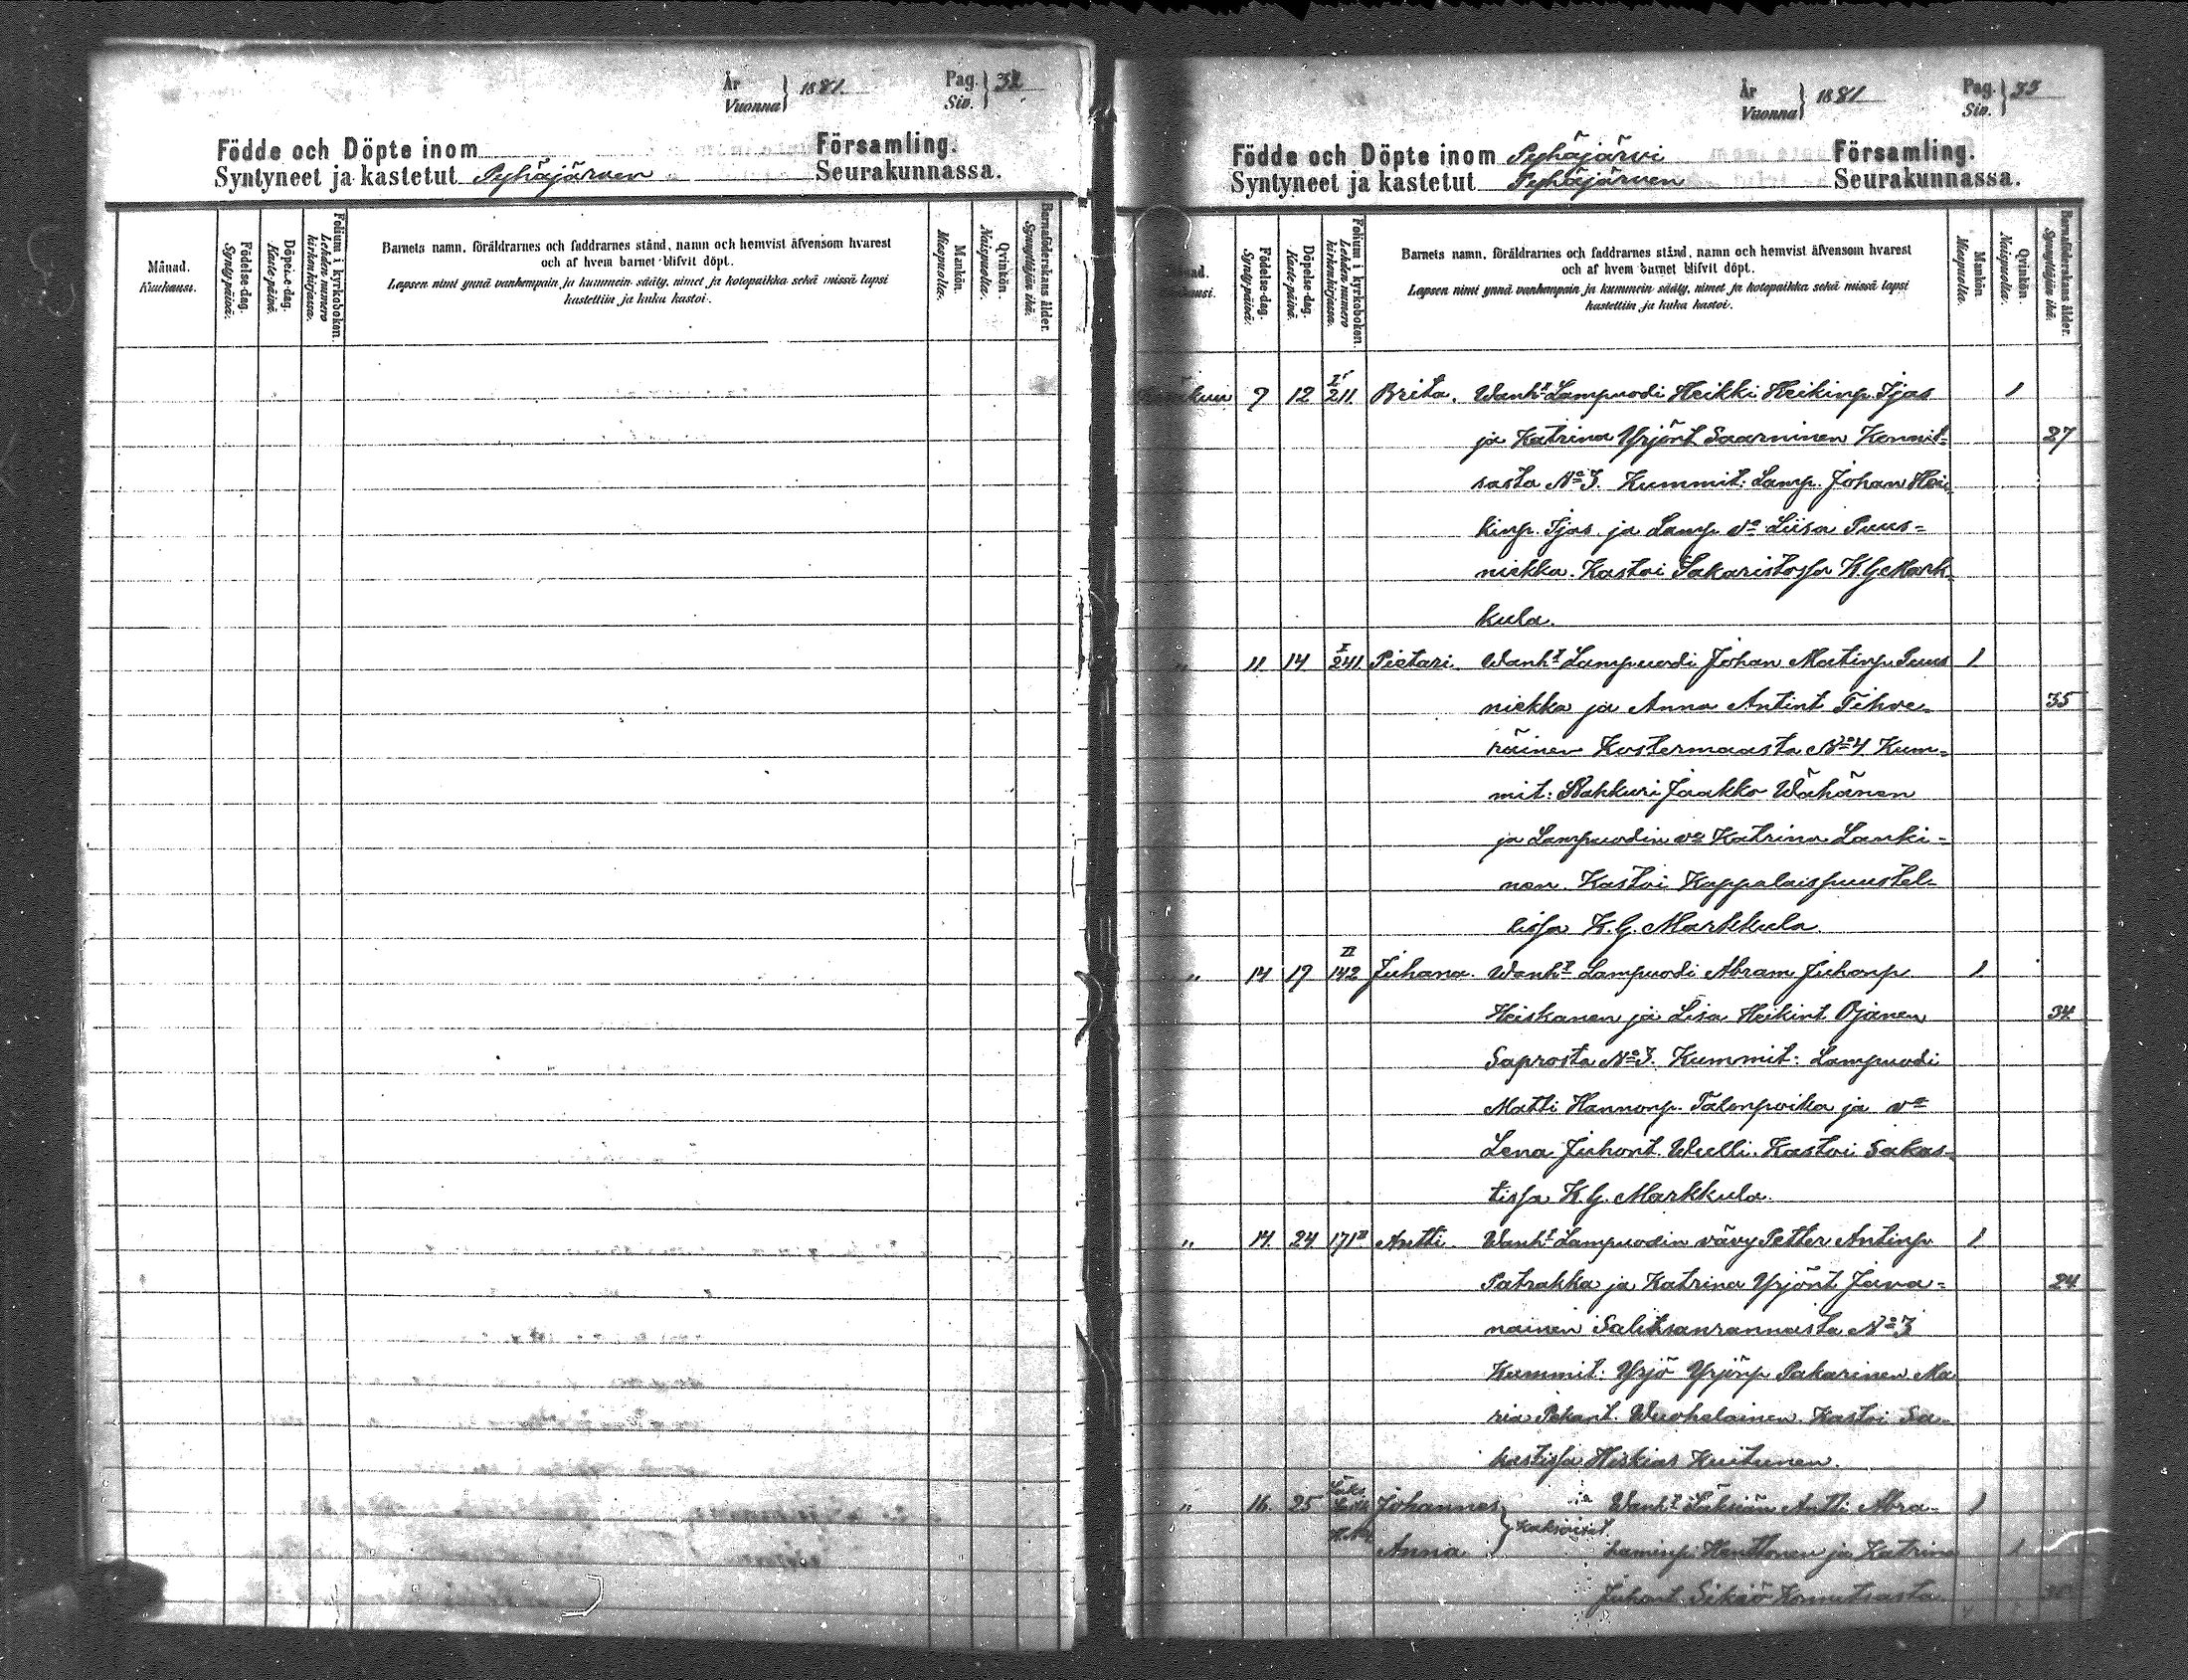 År
Vuonna } 1881.
Pag.
Siv. } 32
Födde och Döpte inom Församling.
Syntyneet ja kastetut Pyhäjärven Seurakunnassa.
Månad.
Kuukausi.
Födelse-dag.
Synty-päivä.
Döpelse-dag.
Kaste-päivä.
Folium i kyrkoboken.
Lehden numero
kirkonkirjassa.
Barnets namn, föräldrarnes och faddrarnes stånd, namn och hemvist äfvensom hvarest
och af hvem barnet blifvit döpt.
Lapsen nimi ynnä vanhempain ja kummein sääty, nimet ja kotopaikka sekä missä lapsi
kastettiin ja kuka kastoi.
Mankön.
Miespuolia.
Qvinkön.
Naispuolia.
Barnaföderskans ålder.
Synnyttäjän ikä.
År
Vuonna } 1881
Pag.
Siv. } 33
Födde och Döpte inom Pyhäjärvi Församling.
Syntyneet ja kastetut Pyhäjärven Seurakunnassa.
Födelse-dag.
Synty-päivä.
Döpelse-dag.
Kaste-päivä.
Folium i kyrkoboken.
Lehden numero
kirkonkirjassa.
Barnets namn, föräldrarnes och faddrarnes stånd, namn och hemvist äfvensom hvarest
och af hvem barnet blifvit döpt.
Lapsen nimi ynnä vanhempain ja kummein sääty, nimet ja kotopaikka sekä missä lapsi
kastettiin ja kuka kastoi.
Mankön.
Miespuolia.
Qvinkön.
Naispuolia.
Barnaföderskans ålder.
Synnyttäjän ikä.
9 12 I 211. Brita. Wanht Lampuodi Heikki Heikinp. Ijas 1
ja Katrina Yrjönt Saarninen Konnit- 27
sasta No 3. Kummit: Lamp. Johan Hei-
kinp. Ijas ja Lamp vo Liisa Puus-
niekka. Kastoi Sakaristossa K.G. Mark-
kula.
" 11 14 I 241 Pietari. Wanht Lampuodi Johan Matinp. Puus 1
niekka ja Anna Antint Tihve- 35
räinen Kostermaasta No 4 Kum-
mit: Rakkuri Jaakko Wähänen
ja Lampuodin vo Katrina Lanki-
nen. Kastoi Kappalaispuustel-
lissa K.G. Markkula.
" 14 17 II 142 Juhana. Wanht Lampuodi Abram Juhonp 1
Heiskanen ja Lisa Heikint Ojanen 34
Saprosta No 3. Kummit: Lampuodi
Matti Hannonp. Talonpoika ja vo
Lena Juhont. Weelli. Kastoi Sakas-
tissa K.G. Markkula.
" 14. 24 171 II Antti. Wanht Lampuodin vävy Petter Antinp 1
Patrakka ja Katrina Yrjönt Java- 24
nainen Salitsanrannasta No 3
Kummit: Yrjö Yrjönp Pakarinen Ma
ria Pekant. Wuohelainen. Kastoi Sa-
kastissa Hiskias Kuitunen.
" 16. 25 Johannes } Kaksoiset Wanht Antti Abra- 1
Anna haminp. Henttonen ja Katrina 1
Juhont. Sikiö Konnitsasta